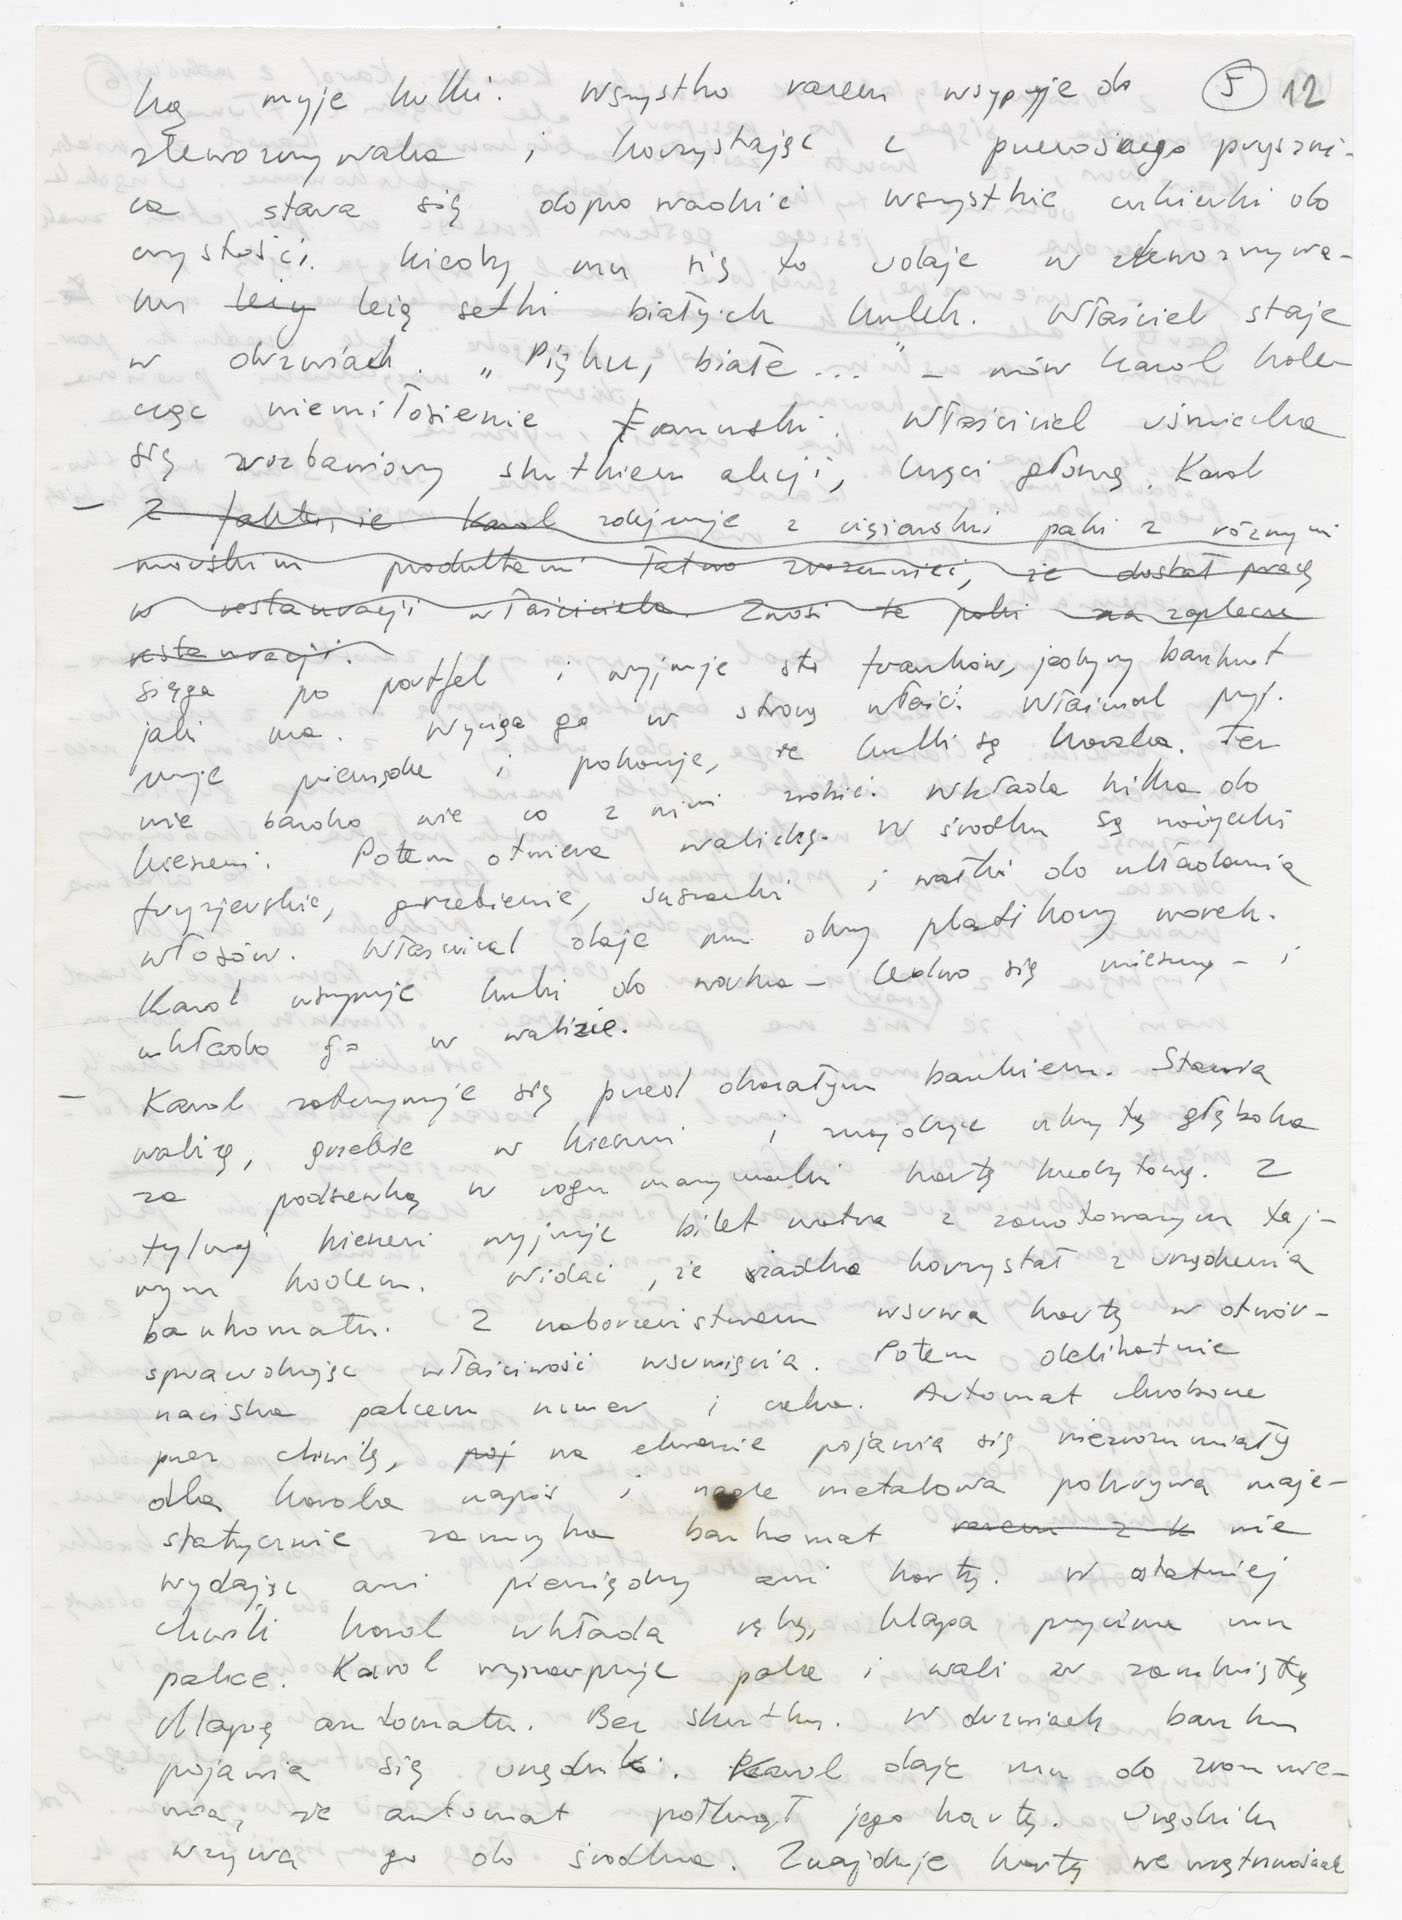 ką myje kulki. Wszystko razem wsypuje do ⑤ 12
zlewozmywaka i korzystając z przenośnego pryszni-
ca stara się doprowadzić wszystkie cukierki do
czystości. Kiedy mu się to udaje w zlewozmywa-
ku leży leżą setki białych kulek. Właściciel staje
w drzwiach. „Piękne, białe..." – mówi Karol kale-
cząc niemiłosiernie francuski. Właściciel uśmiecha
się rozbawiony skutkiem akcji, kręci głową. Karol
– Z faktu, że Karol zdejmuje z ciężarówki paki z różnymi
morskimi produktami łatwo zrozumieć, że dostał pracę
w restauracji właściciela. Znosi te paki na zaplecze
restauracji.
sięga po portfel i wyjmuje sto franków, jedyny banknot
jaki ma. Wyciąga go w stronę właśc. Właściciel przyj-
muje pieniądze i pokazuje, że kulki są Karola. Ten
nie bardzo wie co z nimi zrobić. Wkłada kilka do
kieszeni. Potem otwiera walizkę. W środku są nożyczki
fryzjerskie, grzebienie, suszarki i wałki do układania
włosów. Właściciel daje mu duży plastikowy worek.
Karol wsypuje kulki do worka – ledwo się mieszczą – i
układa go w walizie.
– Karol zatrzymuje się przed okazałym bankiem. Stawia
walizę, grzebie w kieszeni i znajduje ukrytą głęboko
za podszewką w rogu marynarki kartę kredytową. Z
tylnej kieszeni wyjmuje bilet metra z zanotowanym taj-
nym kodem. Widać, że rzadko korzystał z urządzenia
bankomatu. Z nabożeństwem wsuwa kartę w otwór –
sprawdzając właściwość wsunięcia. Potem delikatnie
naciska palcem numer i czeka. Automat chrobocze
przez chwilę, poj na ekranie pojawia się niezrozumiały
dla Karola napis i nagle metalowa pokrywa maje-
statycznie zamyka bankomat razem z k nie
wydając ani pieniędzy ani karty. W ostatniej
chwili Karol wkłada rękę, klapa przycina mu
palce. Karol wyszarpuje palce i wali w zamkniętą
klapę automatu. Bez skutku. W drzwiach banku
pojawia się urzędnik. Karol daje mu do zrozumie-
nia, że automat połknął jego kartę. Urzędnik
wzywa go do środka. Znajduje kartę we wnętrznościach